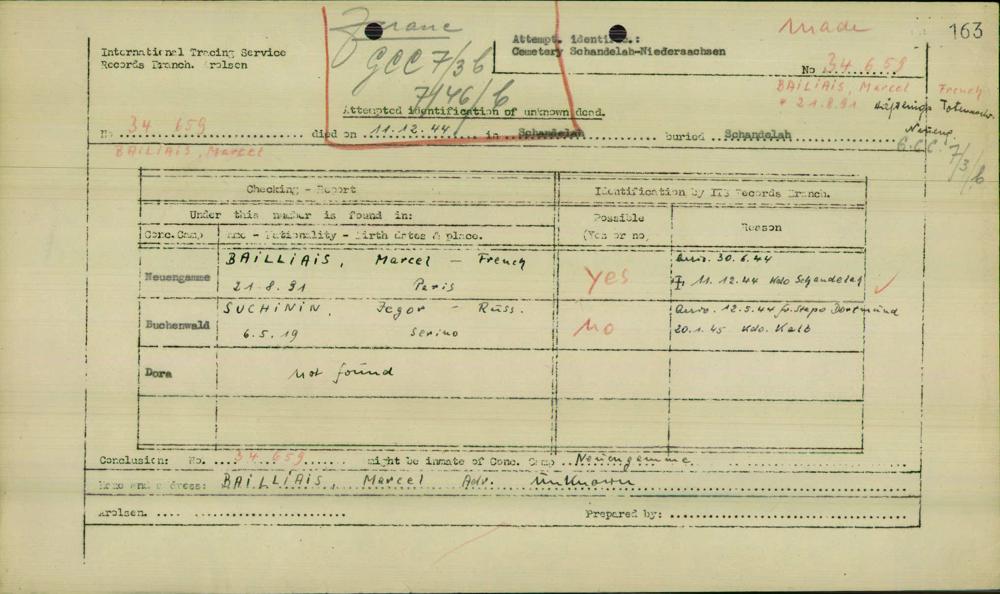 163
Made
France
GCC 7/3b
7/46/b
International Tracing Service
Records Branch. Arolsen
Attempt. identific.:
Cemetery Schandelah-Niedersachsen
No 34 659
BAILIAIS, Marcel French
* 21.8.91
Neueng.
G.C.C. 7/3/b
Attempted identification of unknown dead.
No 34 659 died on 11.12.44 in Schandelah buried Schandelah
BAILIAIS, Marcel
Checking - Report
Identification by ITS Records Branch.
Under this number is found in:
Possible
(Yes or no,
Reason
Conc.Camp
Name - Nationality - Birth dates & place.
Neuengamme
BAILLIAIS, Marcel - French
21.8.91 Paris
Yes
30.6.44
11.12.44 Kdo Schandelah
Buchenwald
SUCHININ, Jegor - Russ.
6.5.19 Serino
No
12.5.44 fr. Stapo Dortmund
20.1.45 Kdo. Kalb
Dora
Not found
Conclusion: No. 34 659 might be inmate of Conc. Camp Neuengamme
Name and address: BAILLIAIS, Marcel Adr. unknown
Arolsen.
Prepared by: